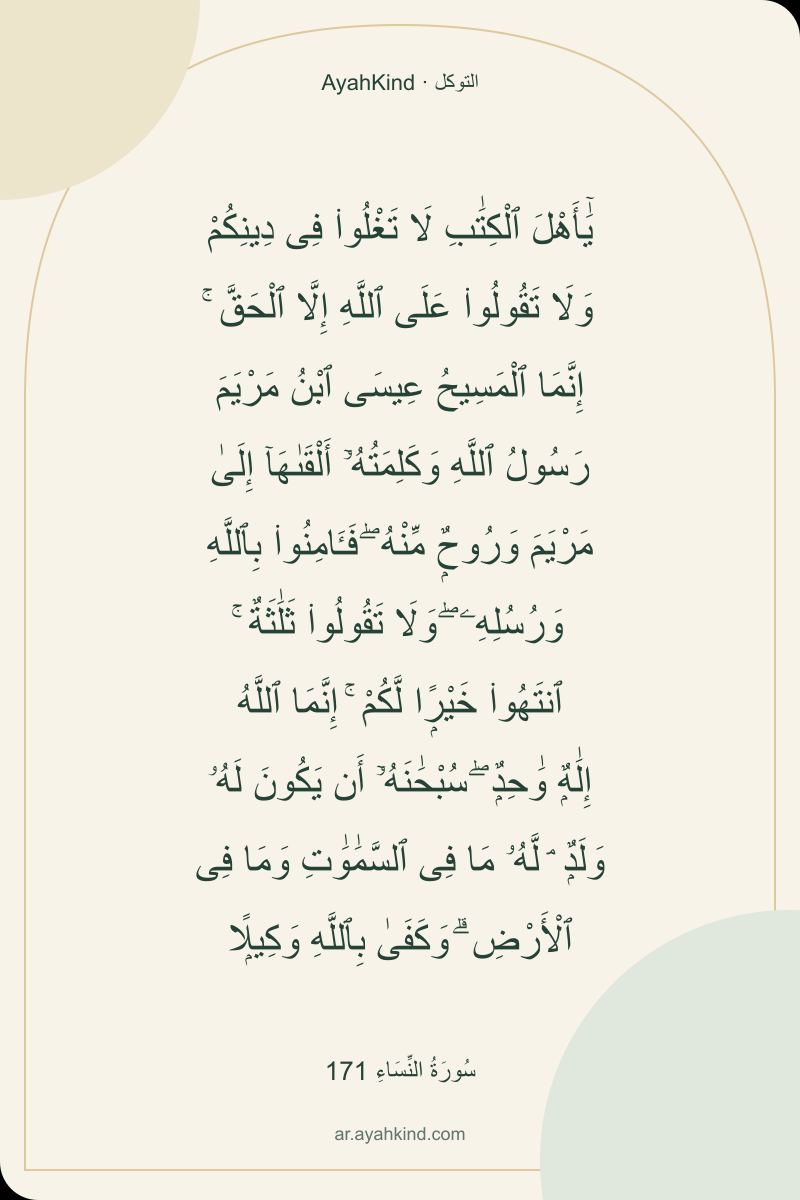 AyahKind · التوكل
يَٰٓأَهْلَ ٱلْكِتَٰبِ لَا تَغْلُوا۟ فِى دِينِكُمْ
وَلَا تَقُولُوا۟ عَلَى ٱللَّهِ إِلَّا ٱلْحَقَّ ۚ
إِنَّمَا ٱلْمَسِيحُ عِيسَى ٱبْنُ مَرْيَمَ
رَسُولُ ٱللَّهِ وَكَلِمَتُهُۥٓ أَلْقَىٰهَآ إِلَىٰ
مَرْيَمَ وَرُوحٌۭ مِّنْهُ ۖ فَـَٔامِنُوا۟ بِٱللَّهِ
وَرُسُلِهِۦ ۖ وَلَا تَقُولُوا۟ ثَلَٰثَةٌ ۚ
ٱنتَهُوا۟ خَيْرًۭا لَّكُمْ ۚ إِنَّمَا ٱللَّهُ
إِلَٰهٌۭ وَٰحِدٌۭ ۖ سُبْحَٰنَهُۥٓ أَن يَكُونَ لَهُۥ
وَلَدٌۭ ۘ لَّهُۥ مَا فِى ٱلسَّمَٰوَٰتِ وَمَا فِى
ٱلْأَرْضِ ۗ وَكَفَىٰ بِٱللَّهِ وَكِيلًۭا
سُورَةُ النِّسَاءِ 171
ar.ayahkind.com